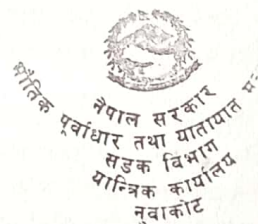 नेपाल सरकार
भौतिक पूर्वाधार तथा यातायात
सडक विभाग
यान्त्रिक कार्यालय
नुवाकोट